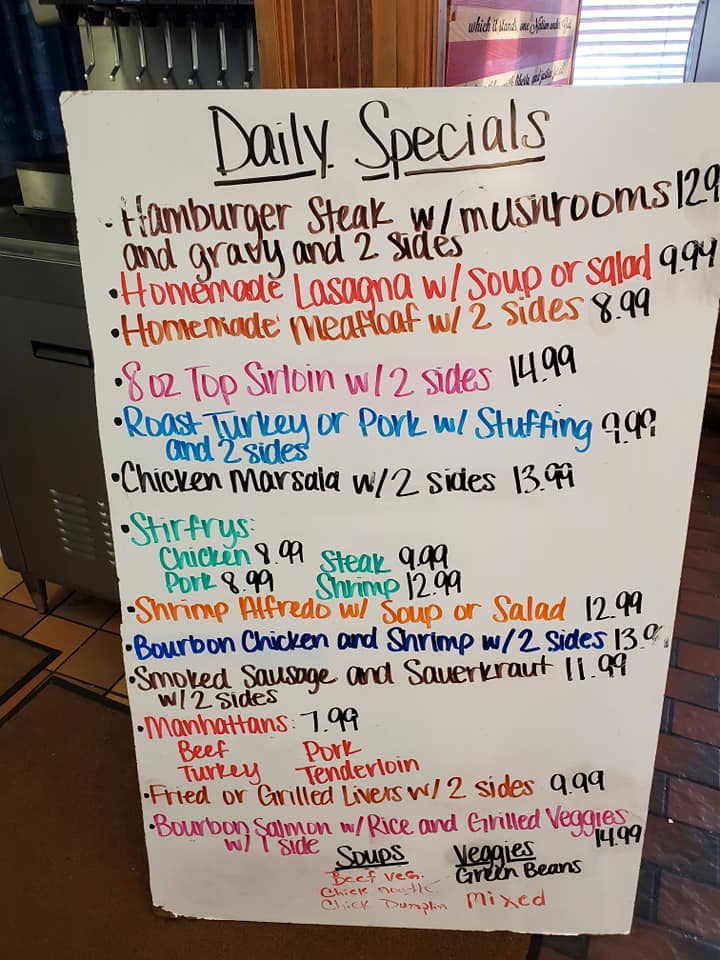 which it stands, one Nation under God,
Daily Specials
• Hamburger Steak w/ mushrooms 12.9
and gravy and 2 sides
• Homemade Lasagna w/ Soup or salad 9.99
• Homemade Meatloaf w/ 2 sides 8.99
• 8 oz Top Sirloin w/ 2 sides 14.99
• Roast Turkey or Pork w/ Stuffing 9.99
and 2 sides
• Chicken Marsala w/ 2 sides 13.99
• Stirfrys:
Chicken 8.99 Steak 9.99
Pork 8.99 Shrimp 12.99
• Shrimp Alfredo w/ Soup or Salad 12.99
• Bourbon Chicken and Shrimp w/ 2 sides 13.9
• Smoked Sausage and Sauerkraut 11.99
w/ 2 sides
• Manhattans: 7.99
Beef Pork
Turkey Tenderloin
• Fried or Grilled Livers w/ 2 sides 9.99
• Bourbon Salmon w/ Rice and Grilled Veggies
w/ 1 side 14.99
Soups Veggies
Beef veg. Green Beans
Chick noodle
Chick Dumplin Mixed